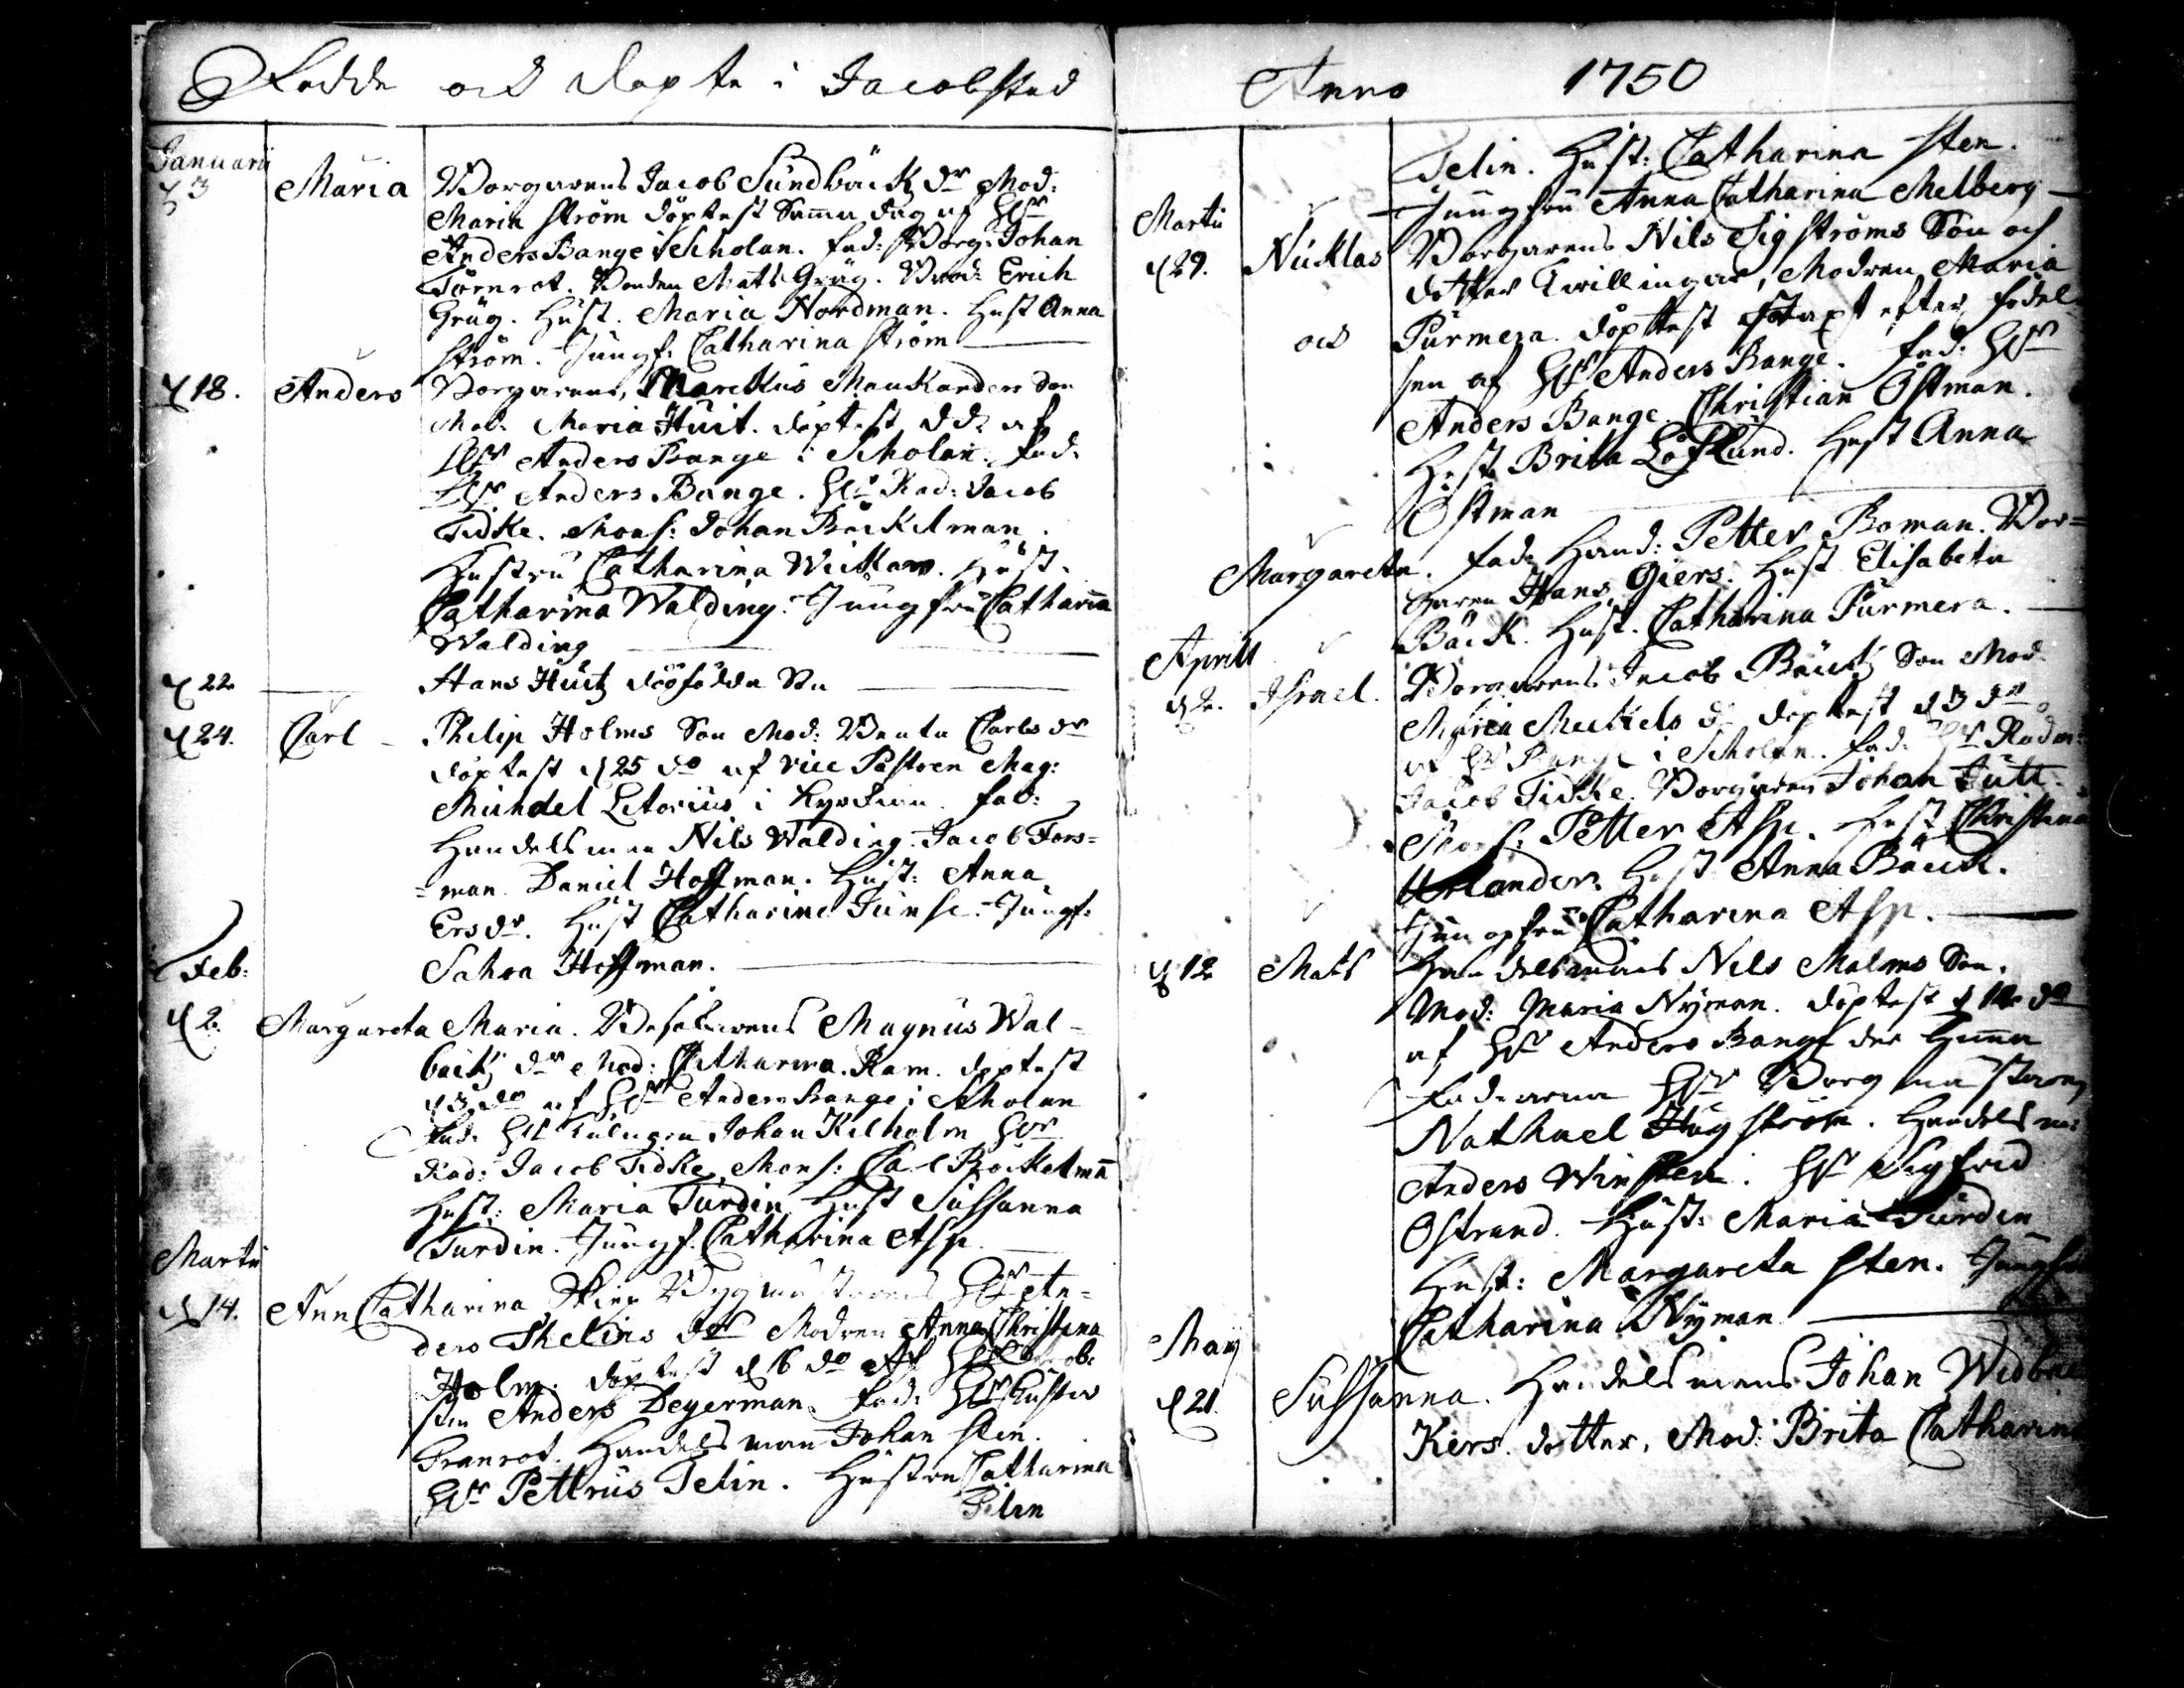 Födde och döpte i Jacobstad
Januarii
d 3 Maria Borgarens Jacob Sundbäck dr Mod:
Maria Ström döptest samma dag af Hr
Anders Bange i Scholan. fad: Borg: Johan
Törnrot. Bonden Matts Gräg. Erich
Gräg. Hust. Maria Nordman. Hust Anna
Ström. Jungf. Catharina Ström
d 18. Anders Borgarens, Marckus Munkanders Son
Mod. Maria Huit. döptest d af
Hr Anders Bange i Scholan. fad:
Hr Anders Bange. Hr Råd: Jacob
Tidke. Mons: Johan Böckelman.
Hustru Catharina Wickar. Hust.
Catharina Walding. Jungfru Catharina
Walding
d 22 Hans Huitz dödfödde
d 24. Carl Philip Holms Son Mod: Beata Carls dr
döptest d 25 do af vice Pastoren Mag:
Michael Litovius i Kyrckian. fad:
Handelsman Nils Walding. Jacob Fors=
=man. Daniel Hoffman. Hust: Anna
Ersdr. Hust Catharina Junse. Jungf:
Sahra Hoffman.
Feb:
d 2. Margareta Maria. Besökarens Magnus Wal-
bäck dr Mod: Catharina Ram. döptest
d 3 do af Hr Anders Bange i Scholan
fad: Hr Johan Kilholm Hr
Råd: Jacob Tidke, Mons: Carl Böckelman
Hust: Maria Turdin Hust Sussanna
Turdin. Jungf. Catharina Asp.
Martii
d 14. Ann Catharina Skiep Byggmästarens Hr An=
ders Thelins dr Modren Anna Christina
Holm. döptest d 16 do af
Anders Degerman. fad: Hr Gustav
Granrot. Handelsman Johan Sten.
Hr Pettrus Telin. Hustru Catharina
Telin
Anno 1750
Telin. Hust: Catharina Sten.
Jungfru Anna Catharina Melberg
Martii
d 29. Nicklas Borgarens Nils Sigströms Son och
dotter Twillingar, Modren Maria
och Purmera. döptest strapt efter födel=
sen af Hr Anders Bange. fad: Hr
Anders Bange. Christian Östman.
Hust Brita Löflund. Hust Anna
Östman
Margareta. fad: Hand: Petter Boman. Bor=
garen Hans Giers. Hust Elisabeta
Bäck. Hust. Catharina Purmera.
Aprill
d 2. Israel. Borgarens Jacob Bäcks Son Mod
Maria Mickels dr döptest d 3 do
af Hr Bange i Scholan. fad: Hr Rådm:
Jacob Tidke. Borgaren Johan Jutt.
Mons: Petter Asp. Hust Christina
Urlander. Hust Anna Bäck.
Jungfru Catharina Asp.
d 12 Mats Handelsmans Nils Malms Son.
Mod: Maria Nyman. döptest d 12 do
af Hr Anders Bange der hemma
fadrarna Hr Borgmästaren
Nathael Hugström. Handelsm:
Anders Winsten. Hr Sigfrid
Östrand. Hust: Maria Turdin
Hust: Margareta Sten. Jungfru
Catharina Nyman
Maij
d 21. Sussanna. Handelsmans Johan Widbäc
Kers dotter, Mod: Brita Catharina